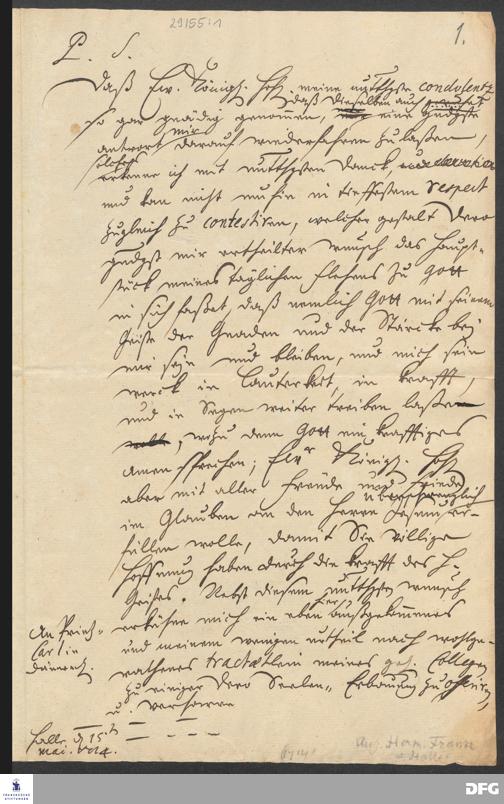 29155:1
1.
P. S.
Daß Ew. Königl. Hoh. meine unterthste condolentz
daß dieselben auch
so gar gnädig genommen, eine gnädigste
antwort mir darauf wiederfahren zu laßen,
solches erkenne ich mit unterthsten Danck,
und kan nicht umhin in tieffestem respect
zugleich zu contestiren, welcher gestalt Dero
gndgst mir ertheilter wunsch das Haupt-
stück meines täglichen flehens zu Gott
in sich faßet, daß nemlich Gott mit seinem
Geiste der Gnaden und der Stärcke bey
mir seyn und bleiben, und mich sein
werck in Lauterkeit, in krafft,
und in Segen weiter treiben laßen
wolle, wozu denn Gott ein kräfftiges
Amen sprechen; Ewr Königl. Hoh
aber mit aller Freude und Friede
überschwenglich
im Glauben an den Herrn Jesum er-
füllen wolle, damit Sie völlige
Hoffnung haben durch die krafft des H.
Geistes. Nebst diesem unterthsten wunsch
erkühne mich ein eben hier außgekommenes
und meinem wenigen urtheil nach wohlge-
rathenes tractätlein meines gel. Collegen
zu einiger Dero Seelen-Erbauung zu offeriren,
u. verharre
An Prinz
Carl in
Dännem.
Halle d 15.
Mai. 1714.
Aug. Herm. Francke
Halle
DFG